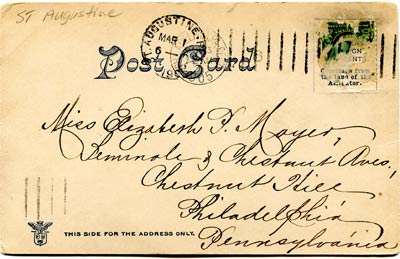 ST Augustine
ST. AUGUSTINE
MAR
6
1905
Post Card
Greetings from
the land of the
Alligator.
Miss Elizabeth F. Moyer,
Seminole & Chestnut Aves,
Chestnut Hill
Philadelphia
Pennsylvania
THIS SIDE FOR THE ADDRESS ONLY.